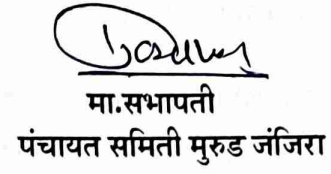 मा.सभापती
पंचायत समिती मुरुड जंजिरा